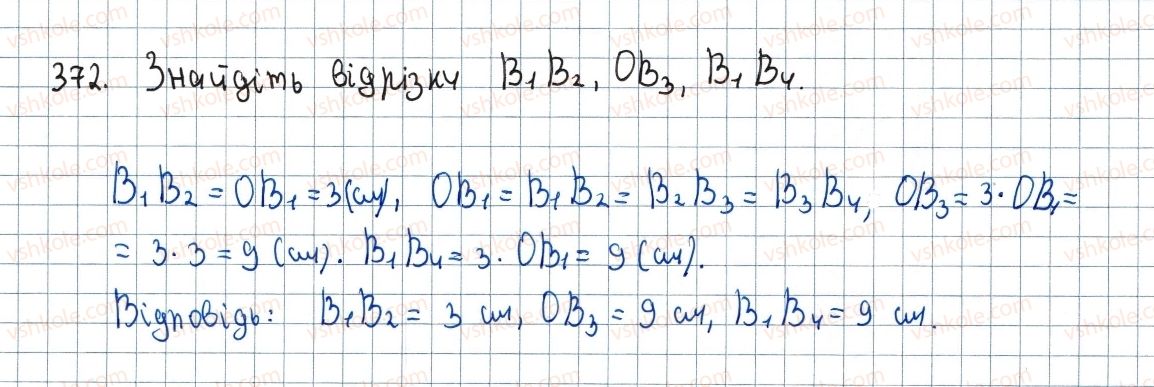 372. Знайдіть відрізки B₁B₂, OB₃, B₁B₄.
B₁B₂ = OB₁ = 3 (см), OB₁ = B₁B₂ = B₂B₃ = B₃B₄, OB₃ = 3 · OB₁ =
= 3 · 3 = 9 (см). B₁B₄ = 3 · OB₁ = 9 (см).
Відповідь: B₁B₂ = 3 см, OB₃ = 9 см, B₁B₄ = 9 см.